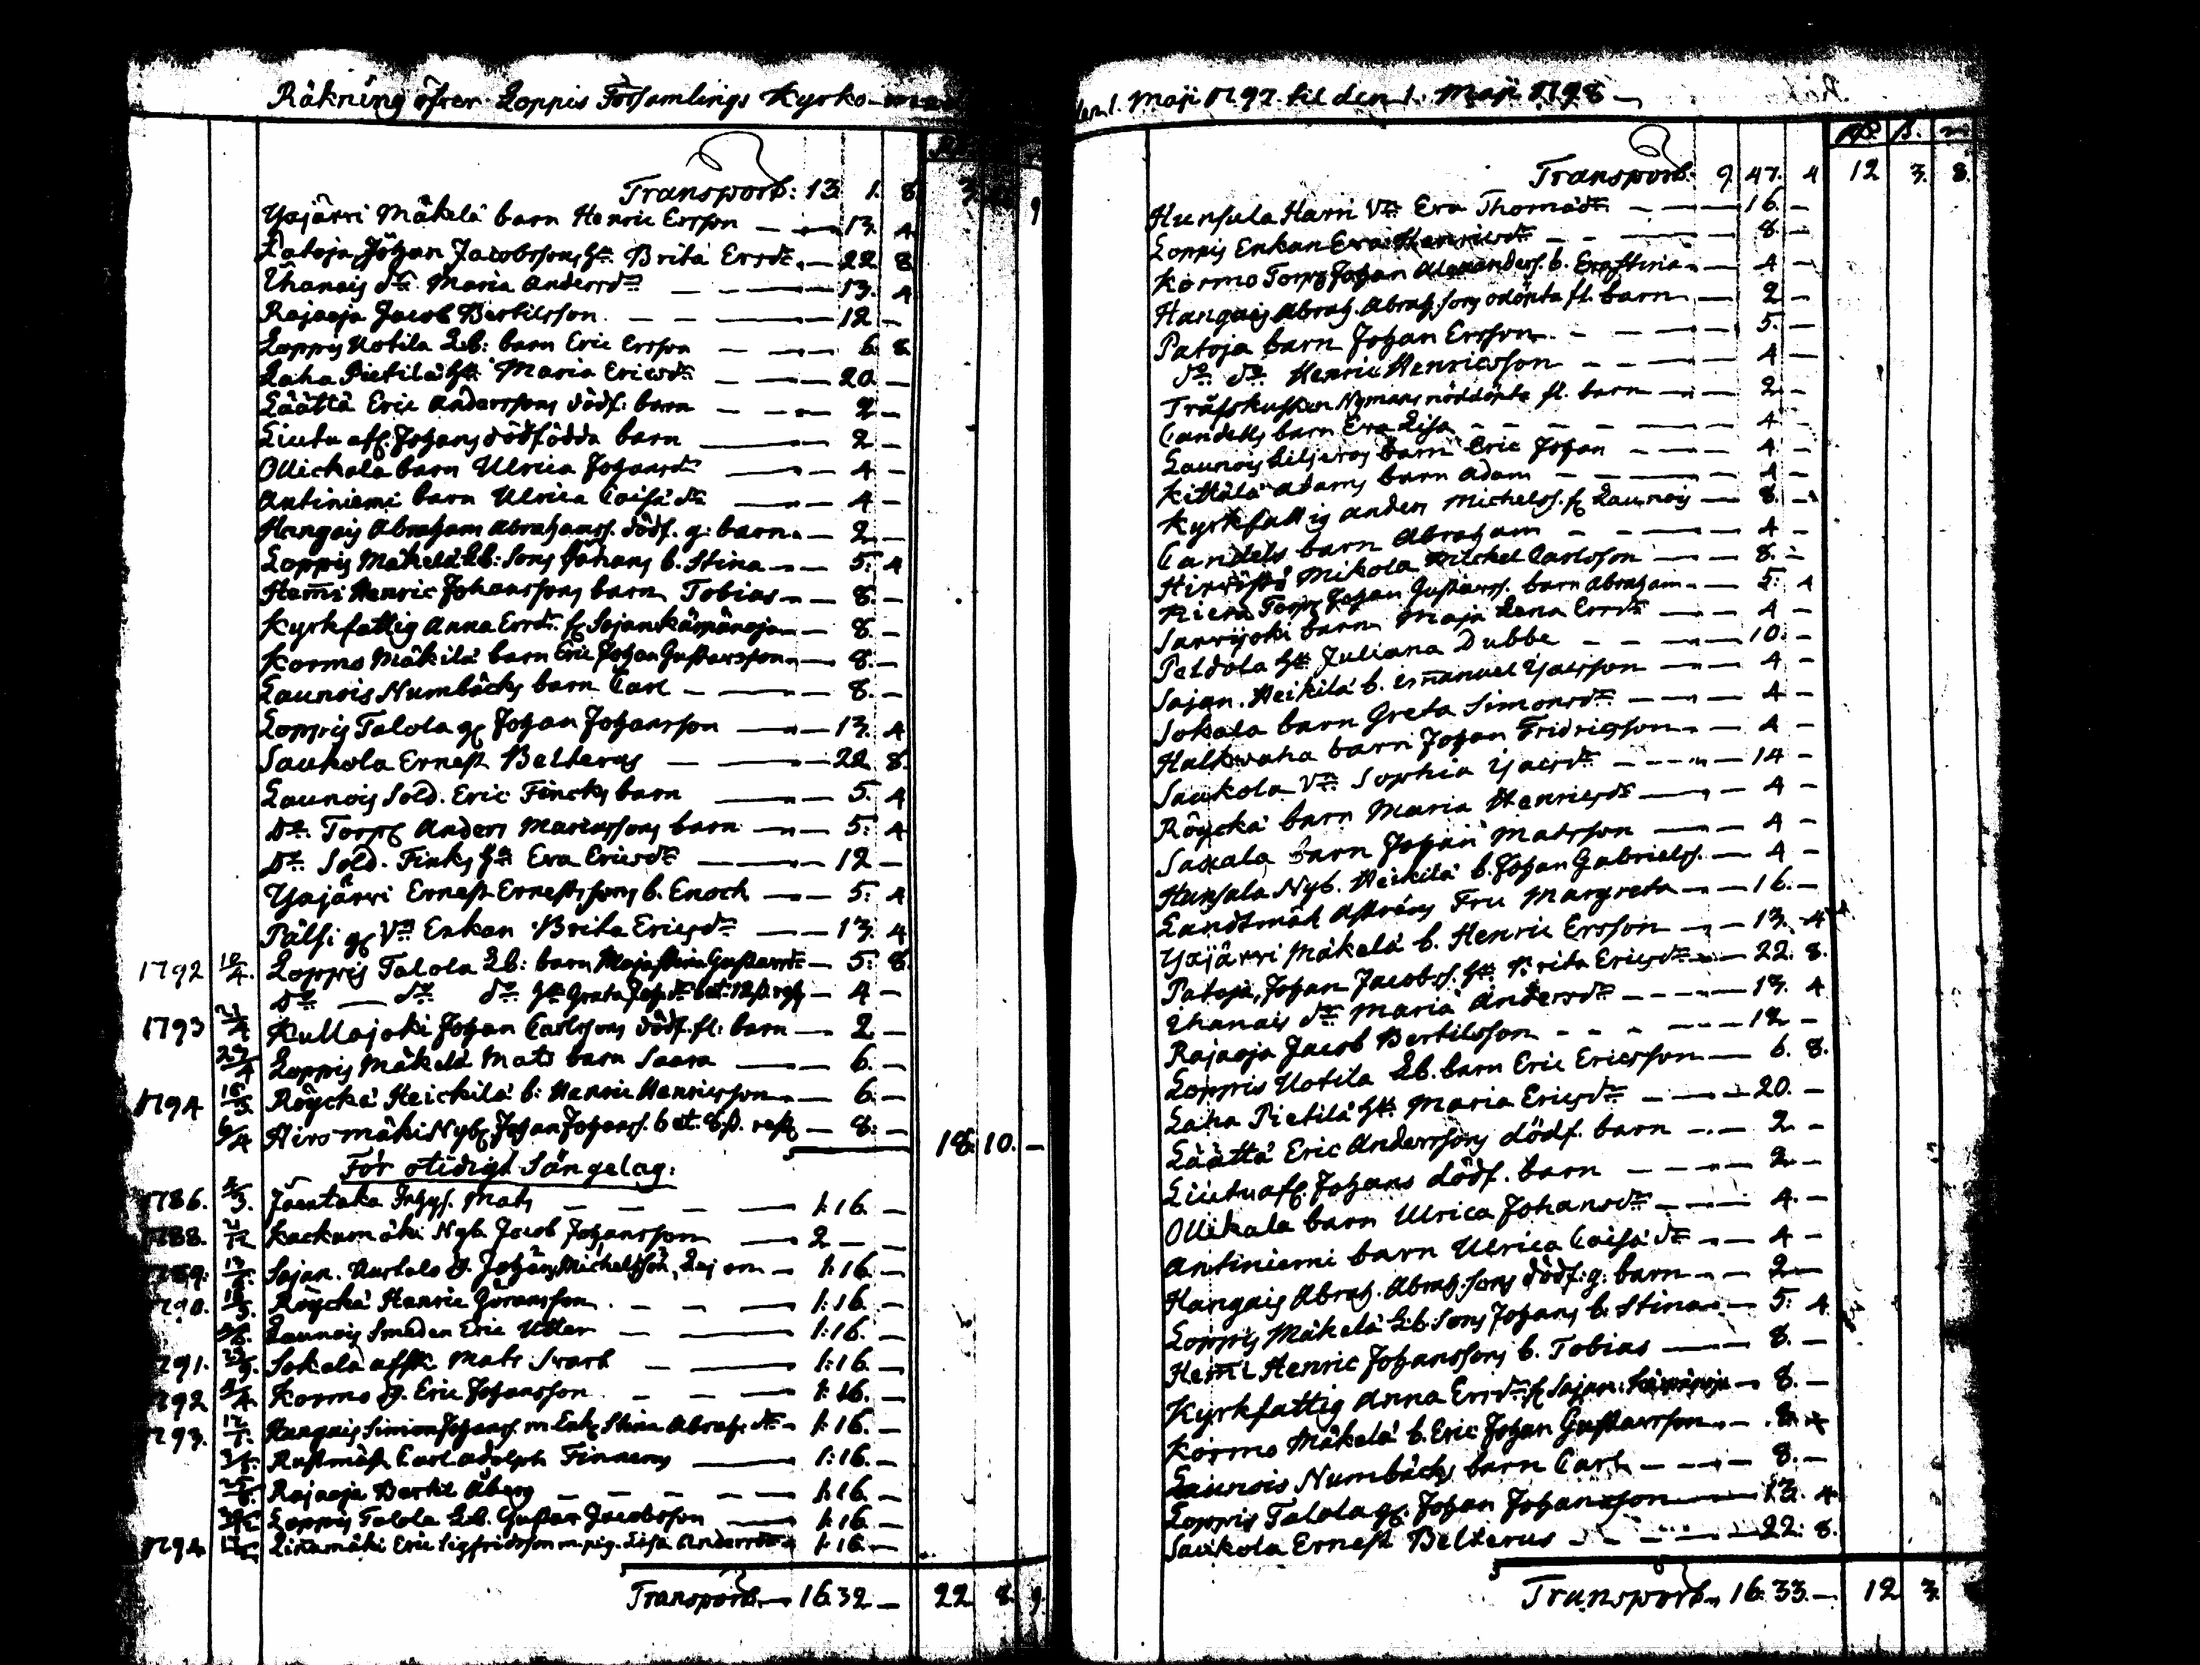 Räkning öfver Loppis Församlings Kyrko
Transport: 13. 1. 8 3. 9
Yxjärvi Mäkelä barn Henric Ersson — 13. 4
Patoja Johan Jacobssons H:u Brita Ersd:r — 22 8
Uhanais d:r Maria Andersd:r — 13. 4
Rajaoja Jacob Bertilsson — 12 —
Loppis Uotila Lb: barn Eric Ersson — 6. 8.
Laha Pietilä H:u Maria Ericsd:r — 20. —
Läättä Eric Anderssons dödf: barn — 2 —
Liutu afsk. Johans dödfödda barn — 2 —
Ollickala barn Ulrica Johansd:r — 4 —
Antiniemi barn Ulrica Caisa d:r — 4 —
Hangais Abraham Abrahamss. dödf. g: barn — 2 —
Loppis Mäkelä Lb: Sons Johans b. Stina — 5: 4
Hemi Henric Johanssons barn Tobias — 8. —
Kyrkfattig Anna Ersd:r fr Sajan. Kämänoja — 8. —
Kormo Mäkilä barn Eric Johan Gustavsson — 8. —
Launois Numbäcks barn Carl — 8. —
Loppis Talola g Johan Johansson — 13. 4
Saukola Ernest Belterus — 22 8.
Launois Sold. Eric Fincks barn — 5. 4
D:o Torp Anders Mariassons barn — 5: 4
D:o Sold. Finks H:u Eva Ericsd:r — 12 —
Yxjärvi Ernest Ernestssons b. Enoch — 5: 4
Pälsi g V:n Enkan Brita Ericsd:r — 13. 4
1792 10/4. Loppis Talola Lb: barn Maja Stina Gustavsd:r — 5: 8.
D:o — d:o d:o H:u Greta Joh.d:r bet. 12 ß. rest — 4 —
1793 /4 Kullajoki Johan Carlssons dödf. fl: barn — 2 —
29/4 Loppis Mäkelä Mats barn Saara — 6. —
1794 16/3. Röyckä Heickilä b: Henric Henricsson — 6. —
6/4 Hirsmäki Nyb. Johan Johanss. bet. 8 ß. rest — 8: — 18. 10. —
För otidigt Sängelag:
1786. /3. Mats — 1:16. —
1788. /12 Kackumäki Nyb Jacob Johansson — 2 — —
1789. Sajan. d. Johan Michelsson, — 1:16. —
1790. Röyckä Henric Göransson — 1:16. —
Launois Smeden Eric Utter — 1:16. —
1791. Sokala afsk. Mats Svart — 1:16. —
1792 /4 Kormo d. Eric Johansson — 1:16. —
1793. Hangais Simon Johanss. m Enk. Stina Abrah. d:r — 1:16. —
Rustmäst. Carl Adolph Finnerus — 1:16. —
Rajaoja Bertil Åberg — 1:16. —
Loppis Talola Lb. Gustav Jacobsson — 1:16. —
1794 Linamäki Eric Sigfridsson m. pig. Lisa Andersd:r — 1:16. —
Transport — 16.32 — 22 8. 9.
den 1. Maji 1797. til den 1. Maji 1798 —
Rd. ß. r.
Transport: 9. 47. 4 12 3. 8.
Hunsala Harri V:n Eva Thomasd:r — 16. —
Loppis Enkan Eva Henricsd:r — 8. —
Kormo Torp Johan Alexanders. b. Ernstina — 4 —
Hangais Abrah. Abrah.sons odöpta fl. barn — 2 —
Patoja barn Johan Ersson — 5. —
d:o d:o Henric Henricsson — 4 —
Träfskusken Nymans nöddöpta fl. barn — 2 —
Candells barn Eva Lisa — 4 —
Launois Liljeroos barn Eric Johan — 4. —
Kittilä Adams barn Adam — 4 —
Kyrkfattig Anders Michelss. fr Launois — 8. —
Candels barn Abraham — 4 —
Hirvistö Mikola Michel Carlsson — 8. —
Kiera Torp Johan Gustavss. barn Abraham — 5. 4
Sarvijoki barn Maja Lena Ersd:r — 4 —
Peldola H:u Juliana Dubbe — 10. —
Sajan. Heikilä b. Emanuel Yjacsson — 4 —
Sokala barn Greta Simonsd:r — 4 —
Halkivaha barn Johan Fridricsson — 4 —
Saukola V:n Sophia Yjacsd:r — 14 —
Röyckä barn Maria Henricsd:r — 4 —
Saxala barn Johan Matsson — 4 —
Hunsala Nyb. Heikilä b. Johan Gabrielss. — 4 —
Landtmät Aströms Fru Margreta — 16. —
Yxjärvi Mäkelä b. Henric Ersson — 13. 4
Patoja, Johan Jacobss. H:u Brita Ericsd:r — 22. 8.
Uhanais d:r Maria Andersd:r — 13. 4
Rajaoja Jacob Bertilsson — 12 —
Loppis Uotila Lb. barn Eric Ericsson — 6. 8.
Laha Pietilä H:u Maria Ericsd:r — 20. —
Läättä Eric Anderssons dödf. barn — 2 —
Liutu afsk. Johans dödf. barn — 2 —
Ollikala barn Ulrica Johansd:r — 4. —
Antiniemi barn Ulrica Caisa d:r — 4 —
Hangais Abrah. Abrah.sons dödf: g: barn — 2 —
Loppis Mäkelä Lb Sons Johans b. Stina — 5: 4
Hemi Henric Johanssons b. Tobias — 8. —
Kyrkfattig Anna Ersd:r fr Sajan. Kämänoja — 8. —
Kormo Mäkelä b. Eric Johan Gustavsson — 8. —
Launois Numbäcks barn Carl — 8. —
Loppis Talola g. Johan Johansson — 13. 4
Saukola Ernest Belterus — 22. 8.
Transport 16. 33. — 12 3.